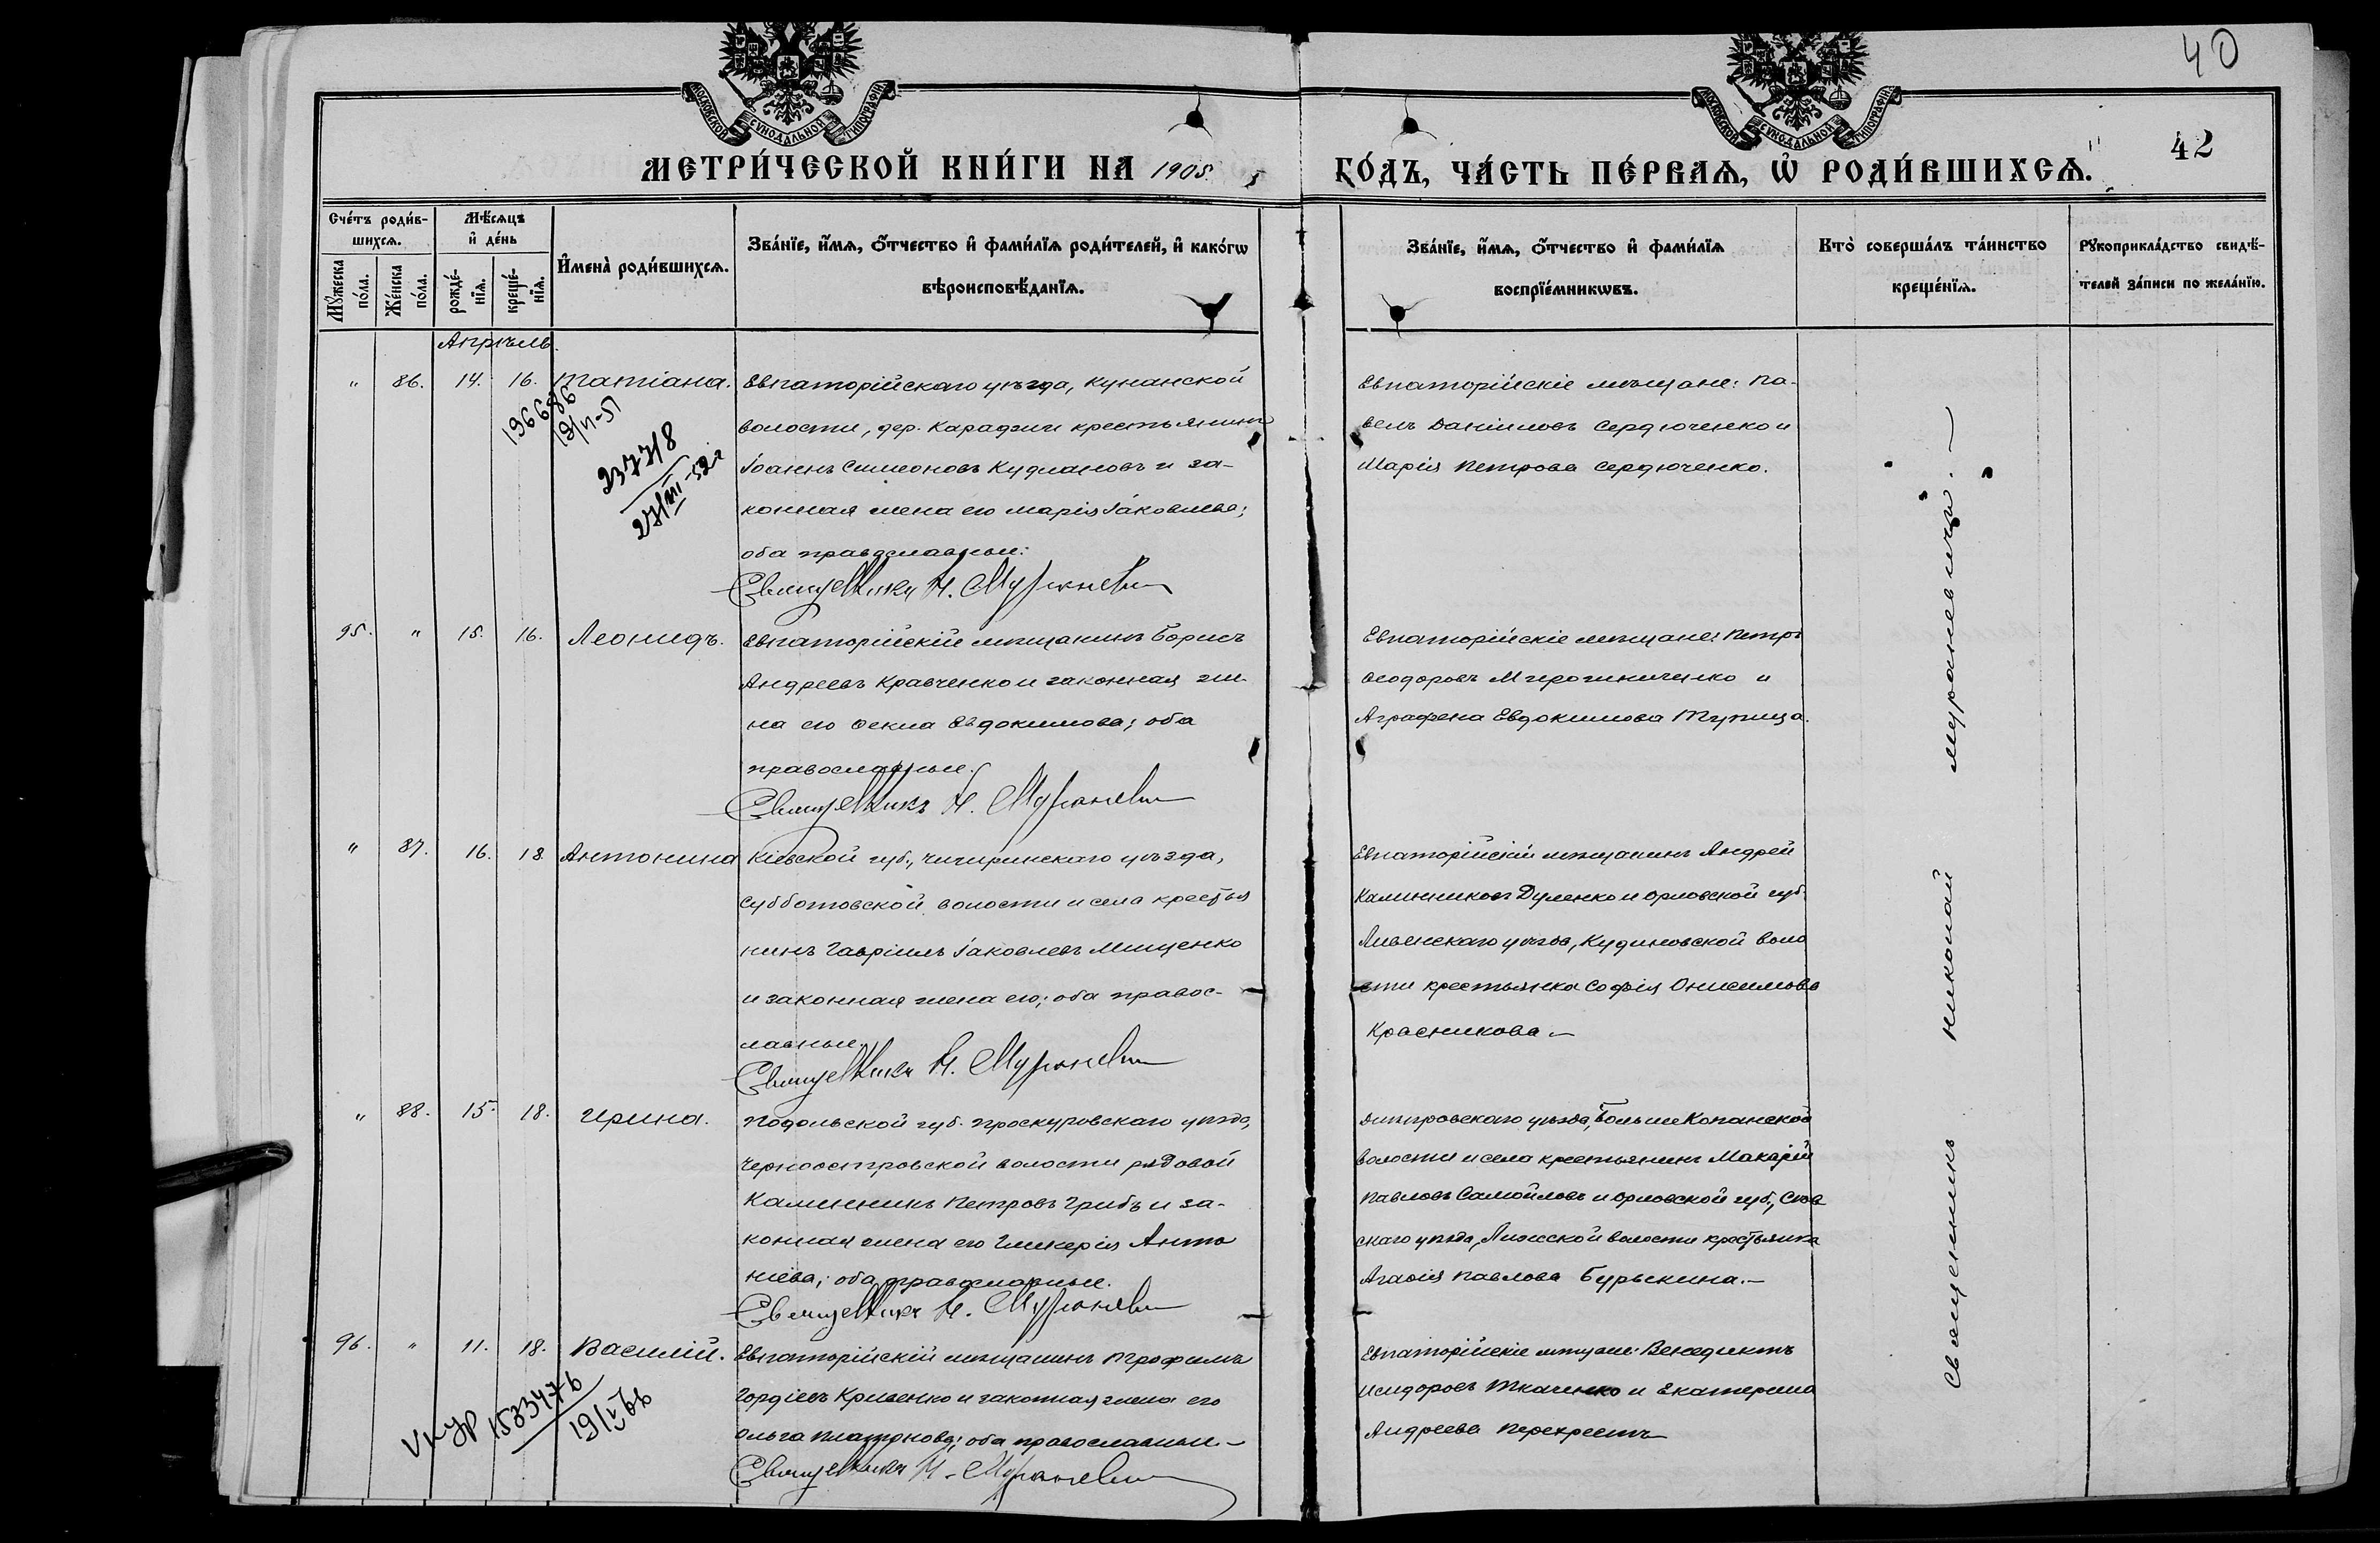 40
МОСКОВСКОЙ СѴНОДАЛЬНОЙ ТИПОГРАФІИ
МОСКОВСКОЙ СѴНОДАЛЬНОЙ ТИПОГРАФІИ
МЕТРИ́ЧЕСКОЙ КНИ́ГИ НА 1905
ГО́ДЪ, ЧА́СТЬ ПЕ́РВАѦ, Ѡ҆ РОДИ́ВШИХСѦ.
42
Сче́тъ роди́в-
шихсѧ.
Мꙋ́жеска
по́ла.
Же́нска
по́ла.
Мѣ́сѧцъ
и҆ де́нь
рожде́-
нїѧ.
креще́-
нїѧ.
И҆мена̀ роди́вшихсѧ.
Зва́нїе, и҆́мѧ, ѻ҆́тчество и҆ фами́лїѧ роди́телей, и҆ како́гѡ
вѣроисповѣ́данїѧ.
Зва́нїе, и҆́мѧ, ѻ҆́тчество и҆ фами́лїѧ
воспрїе́мникѡвъ.
Кто̀ соверша́лъ та́инство
креще́нїѧ.
Рꙋкоприкла́дство свидѣ́-
телей за́писи по жела́нїю.
Апрѣль.
" 86. 14. 16. Татіана.
Евпаторійскаго уѣзда, Кунанской
волости, дер. Караджи крестьянинъ
Іоаннъ Симеоновъ Кудлановъ и за-
конная жена его Марія Іаковлева;
оба православные:
Священникъ Н. Мураневичъ
Евпаторійскіе мѣщане: Па-
велъ Даніиловъ Сердюченко и
Марія Петрова Сердюченко.
196686
23718
95. " 15. 16. Леонидъ.
Евпаторійскій мѣщанинъ Борисъ
Андреевъ Кравченко и законная же-
на его Ѳекла Евдокимова; оба
православные.
Священникъ Н. Мураневичъ
Евпаторійскіе мѣщане: Петръ
Ѳеодоровъ и
Аграфена Евдокимова Тупица.
" 87. 16. 18. Антонина
Кіевской губ., Чигиринскаго уѣзда,
Субботовской волости и села крестья
нинъ Гавріилъ Іаковлевъ Мищенко
и законная жена его; оба правос-
лавные.
Священникъ Н. Мураневичъ
Евпаторійскій мѣщанинъ Андрей
Каллиниковъ Дуленко и Орловской губ.
Ливенскаго уѣзда, Кудиновской воло
сти крестьянка Софія Онисимова
Красникова —
" 88. 15. 18. Ирина.
Подольской губ. Проскуровскаго уѣзда,
Черноостровской волости рядовой
Каллиникъ Петровъ Грибъ и за-
конная жена его Гликерія Анто
ніева; оба православные.
Священникъ Н. Мураневичъ
Днѣпровскаго уѣзда, Больше Копанской
волости и села крестьянинъ Макарій
Павловъ Самойловъ и Орловской губ., Сѣв
скаго уѣзда, волости крестьянка
Агаѳія Павлова Бурыкина. —
96. " 11. 18. Василій.
Евпаторійскій мѣщанинъ Трофимъ
Гордіевъ Кривенко и законная жена его
Ольга Платонова; оба православные. —
Священникъ Н. Мураневичъ
Евпаторійскіе мѣщане: Венедиктъ
Исидоровъ Ткаченко и Екатерина
Андреева Перекрестъ
Священникъ Николай Мураневичъ. —